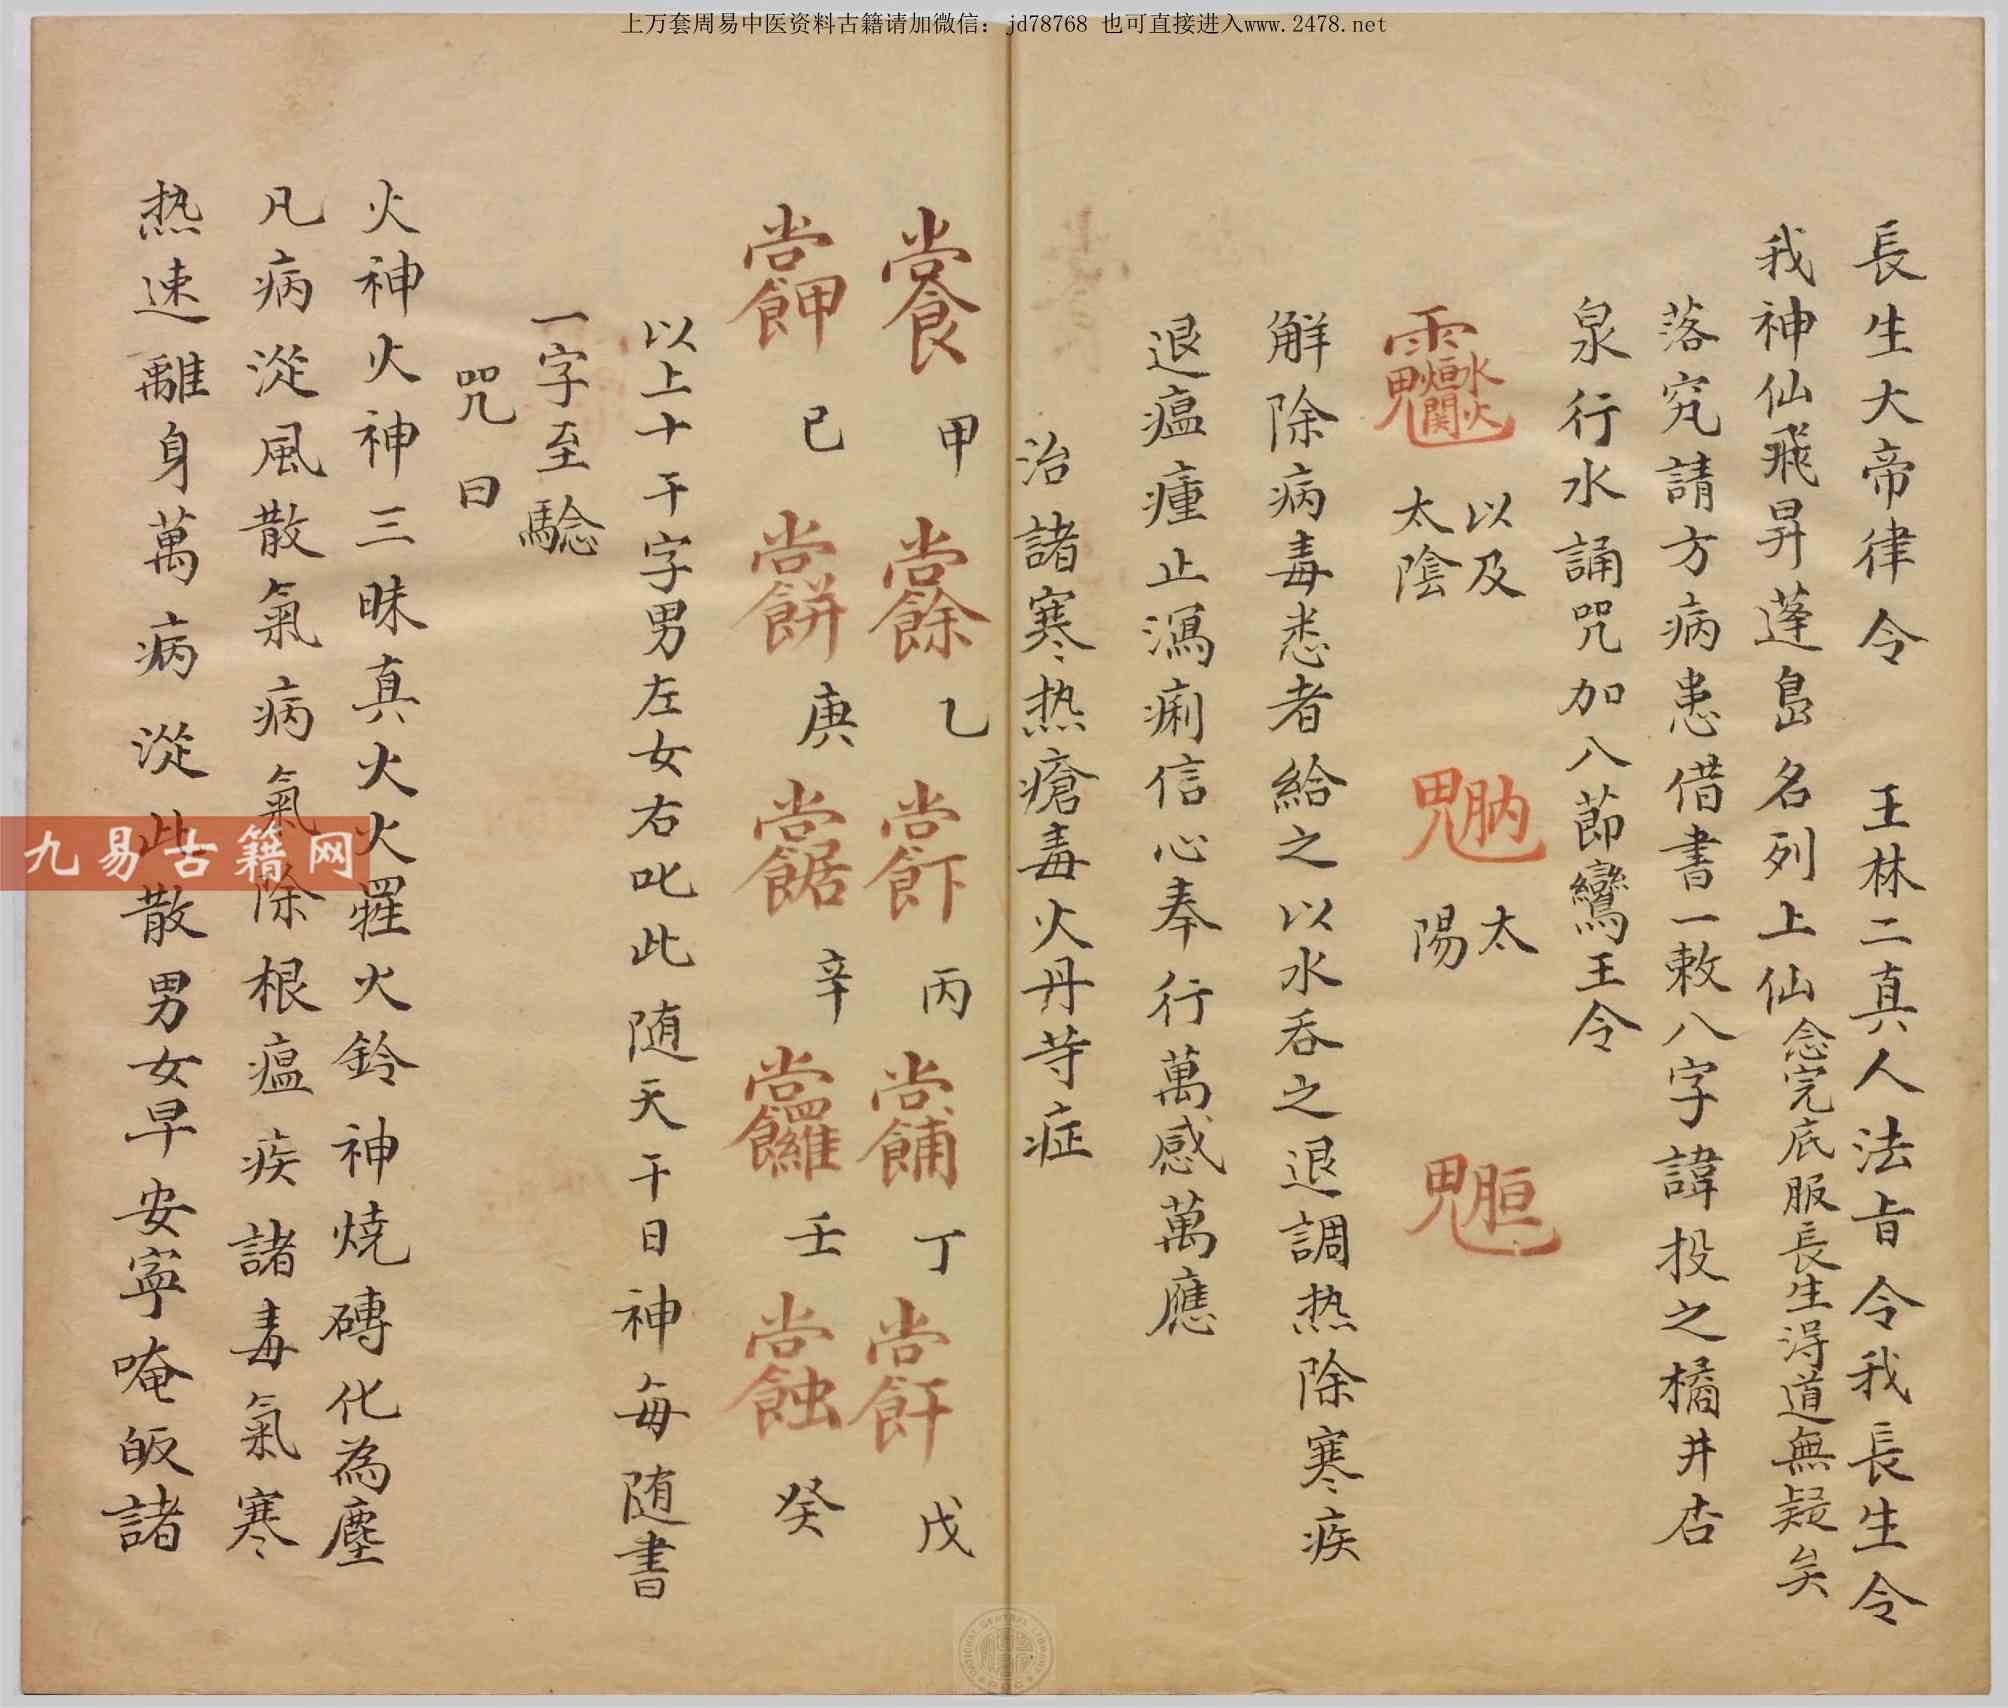 上万套周易中医资料古籍请加微信：jd78768 也可直接进入www.2478.net
長生大帝律令 王林二真人法旨令我長生令
我神仙飛昇蓬島名列上仙念完底服長生得道無疑矣
落究請方病患借書一敕八字諱投之橘井杏
泉行水誦咒加八節鸞王令
以及太陰 太陽
解除病毒悉者給之以水吞之退調热除寒疾
退瘟瘇止瀉痢信心奉行萬感萬應
治諸寒热瘡毒火丹等症
甲 乙 丙 丁 戊
己 庚 辛 壬 癸
以上十干字男左女右叱此随天干日神每随書
一字至騐
咒曰
火神火神三昧真火火羅火鈴神燒磚化為塵
凡病從風散氣病氣除根瘟疾諸毒氣寒
热速離身萬病從此散男女早安寧唵皈諸
九易古籍网